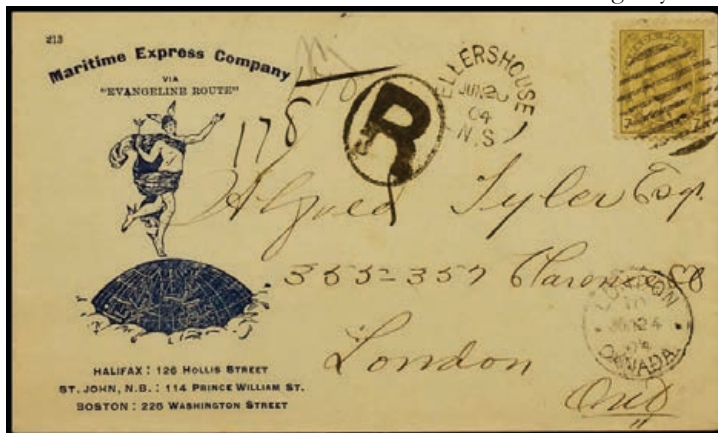 213
Maritime Express Company
VIA
"EVANGELINE ROUTE"
ELLERSHOUSE
JUN 20
04
N.S
R
178
7 7
Alfred Tyler Esqr.
355-357 Clarence St
LONDON
JUN 24
04
CANADA
London
Ont
HALIFAX : 126 HOLLIS STREET
ST. JOHN, N.B. : 114 PRINCE WILLIAM ST.
BOSTON : 226 WASHINGTON STREET